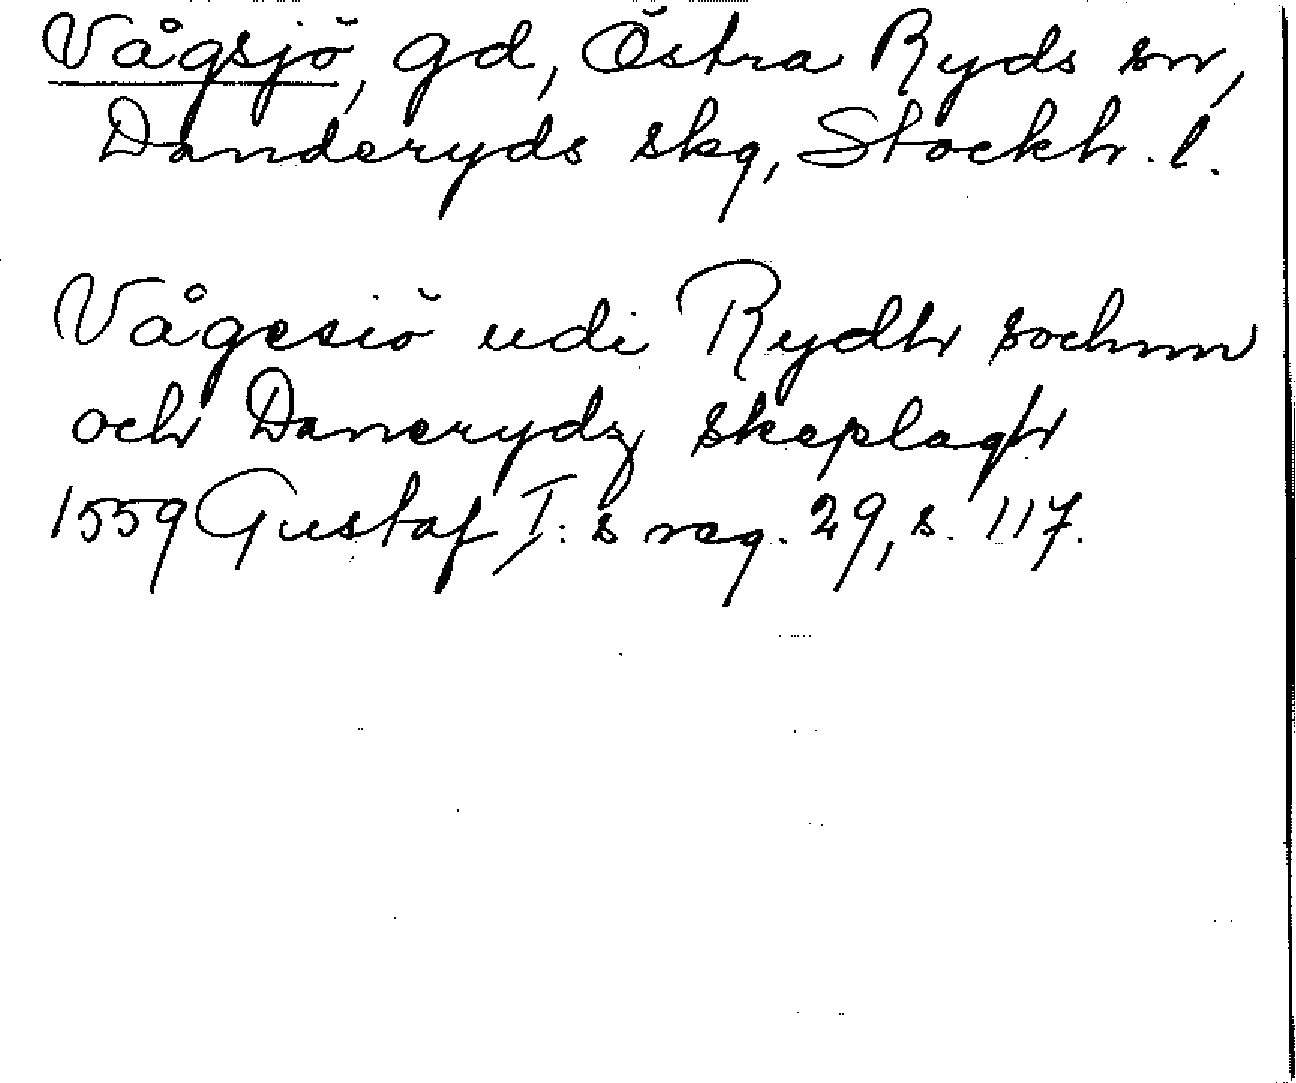 Vågsjö, gd, Östra Ryds sn,
Danderyds skg, Stockh. l.
Vågesiö udi Rydh sochnn
och Danerydz skeplagh
1559 Gustaf I:s reg. 29, s. 117.